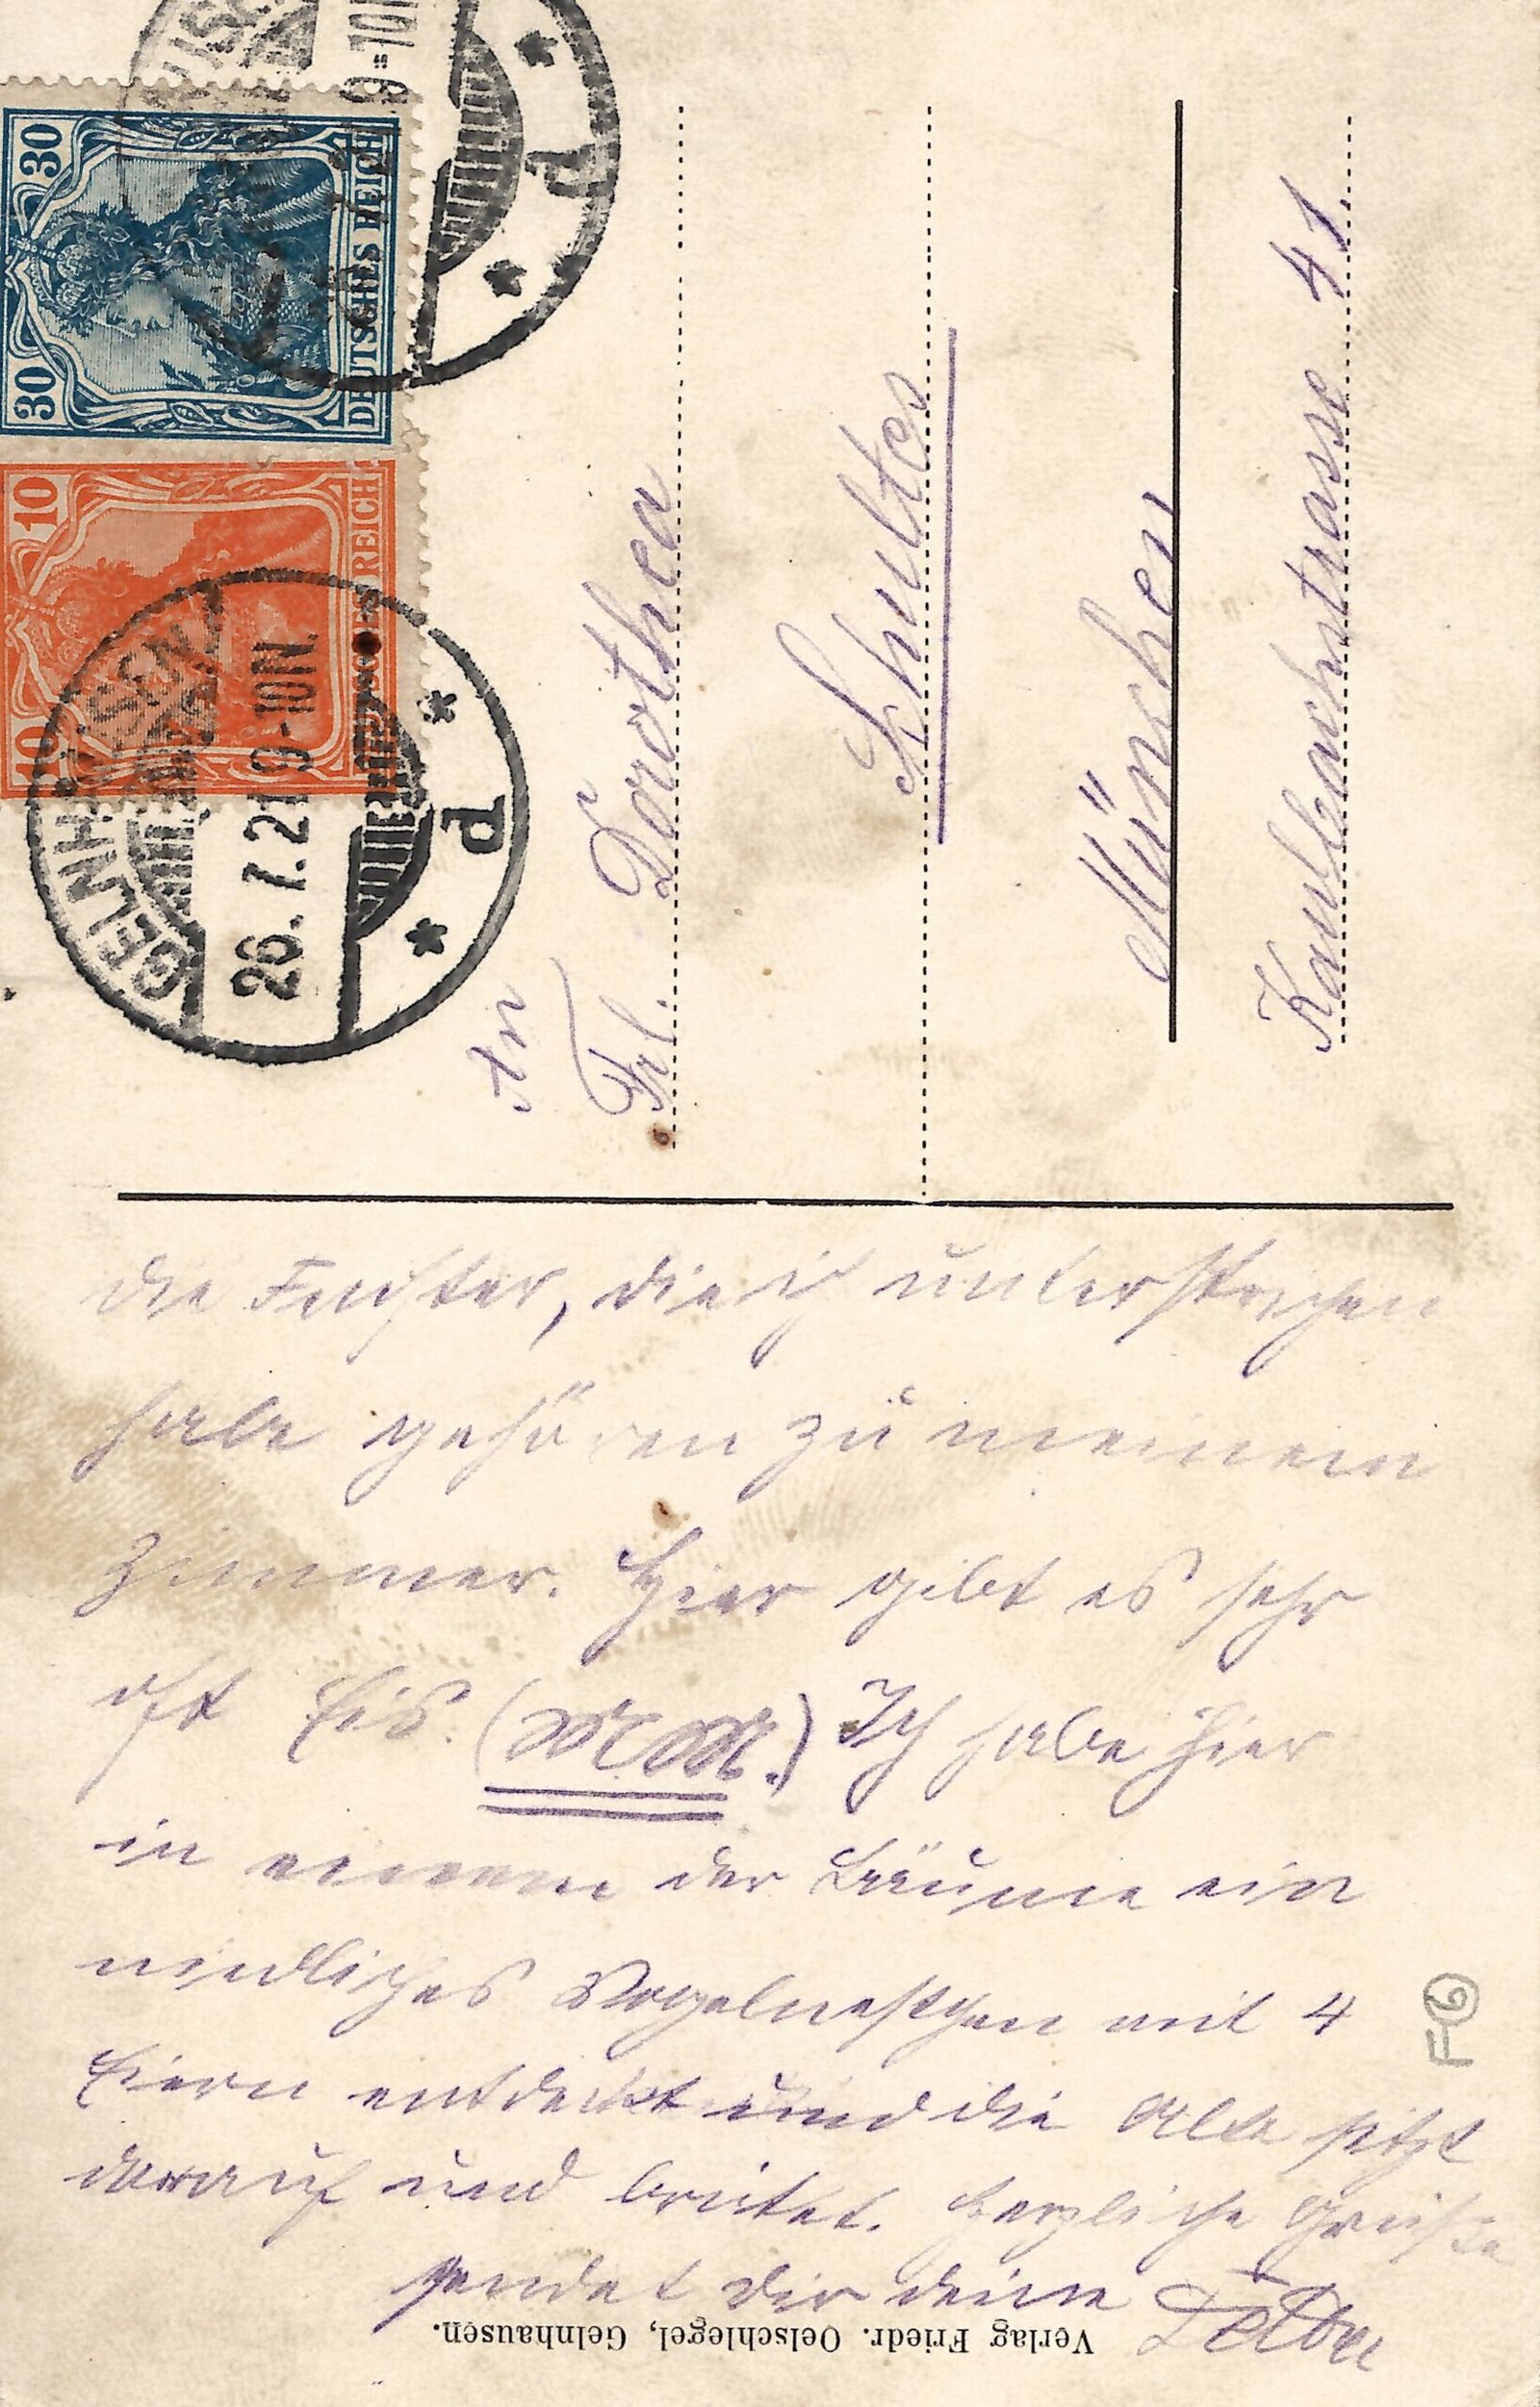 30
30
DEUTSCHES REICH
10
10
DEUTSCHES REICH
9-10N
d
GELNHAUSEN
26.7.21 9-10N.
d
An
Frl. Dorothea
Schultes
München
Kaulbachstrasse 41.
die Fenster, die ich unterstrichen
habe gehören zu meinem
Zimmer. Hier gibt es sehr
oft Eis. ( ) Ich habe hier
in einem der Bäume ein
niedliches Vogelnestchen mit 4
Eiern entdeckt und die Alte sitzt
darauf und brütet. Herzliche Grüße
sendet dir deine
Verlag Friedr. Oelschlegel, Gelnhausen.
F6